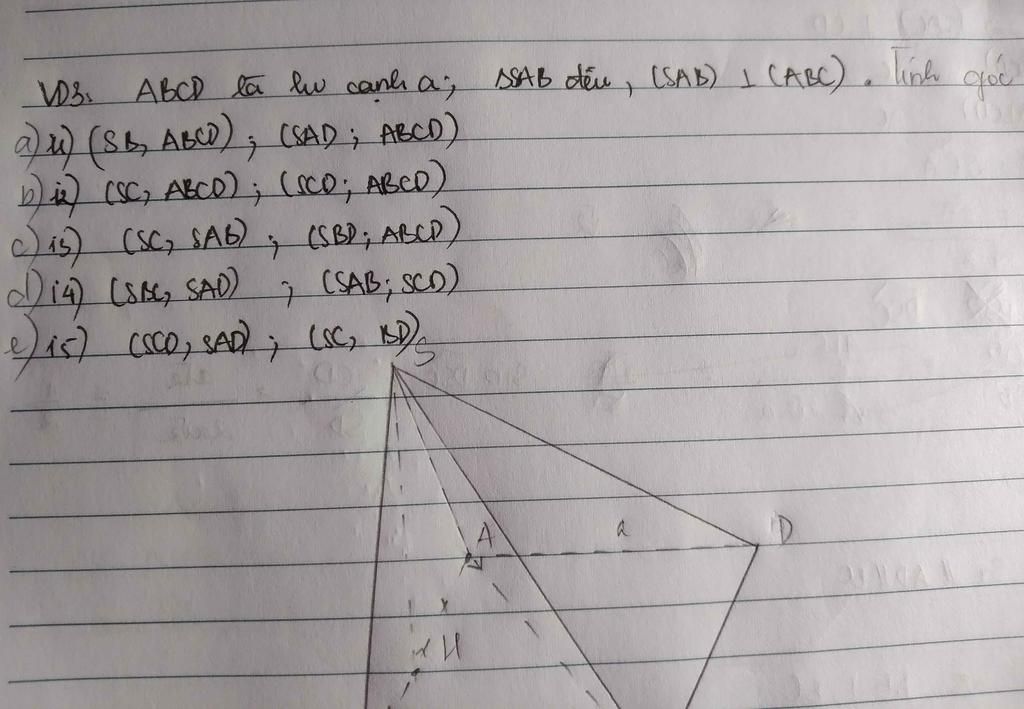 VD3. ABCD là hv cạnh a; ΔSAB đều, (SAB) ⊥ (ABC). Tính góc
a) i1) (SB, ABCD); (SAD; ABCD)
b) i2) (SC, ABCD); (SCD; ABCD)
c) i3) (SC, SAB); (SBD; ABCD)
d) i4) (SBC, SAD) ; (SAB; SCD)
e) i5) (SCD, SAD); (SC, BD)
S
A
a
D
H